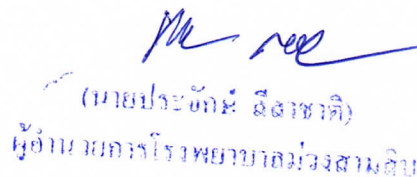 (นายประจักษ์ สีลาชาติ)
ผู้อำนวยการโรงพยาบาลม่วงสามสิบ